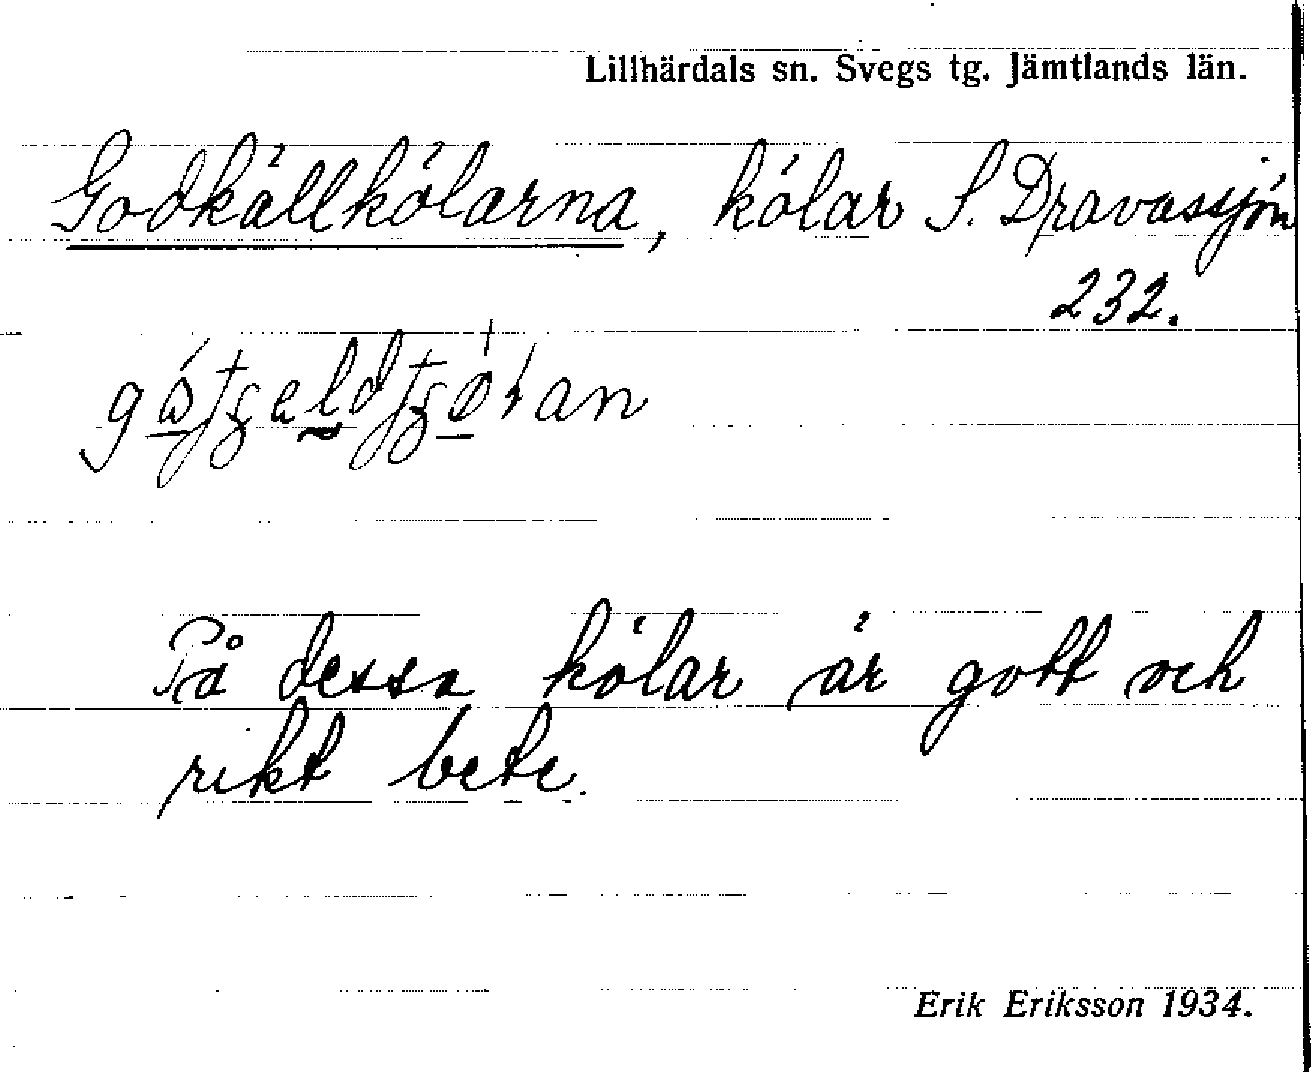 Lillhärdals sn. Svegs tg. Jämtlands län.
Godkällkölarna, kölar S. Dravassjön
232.
På dessa kölar är gott och
rikt bete.
Erik Eriksson 1934.